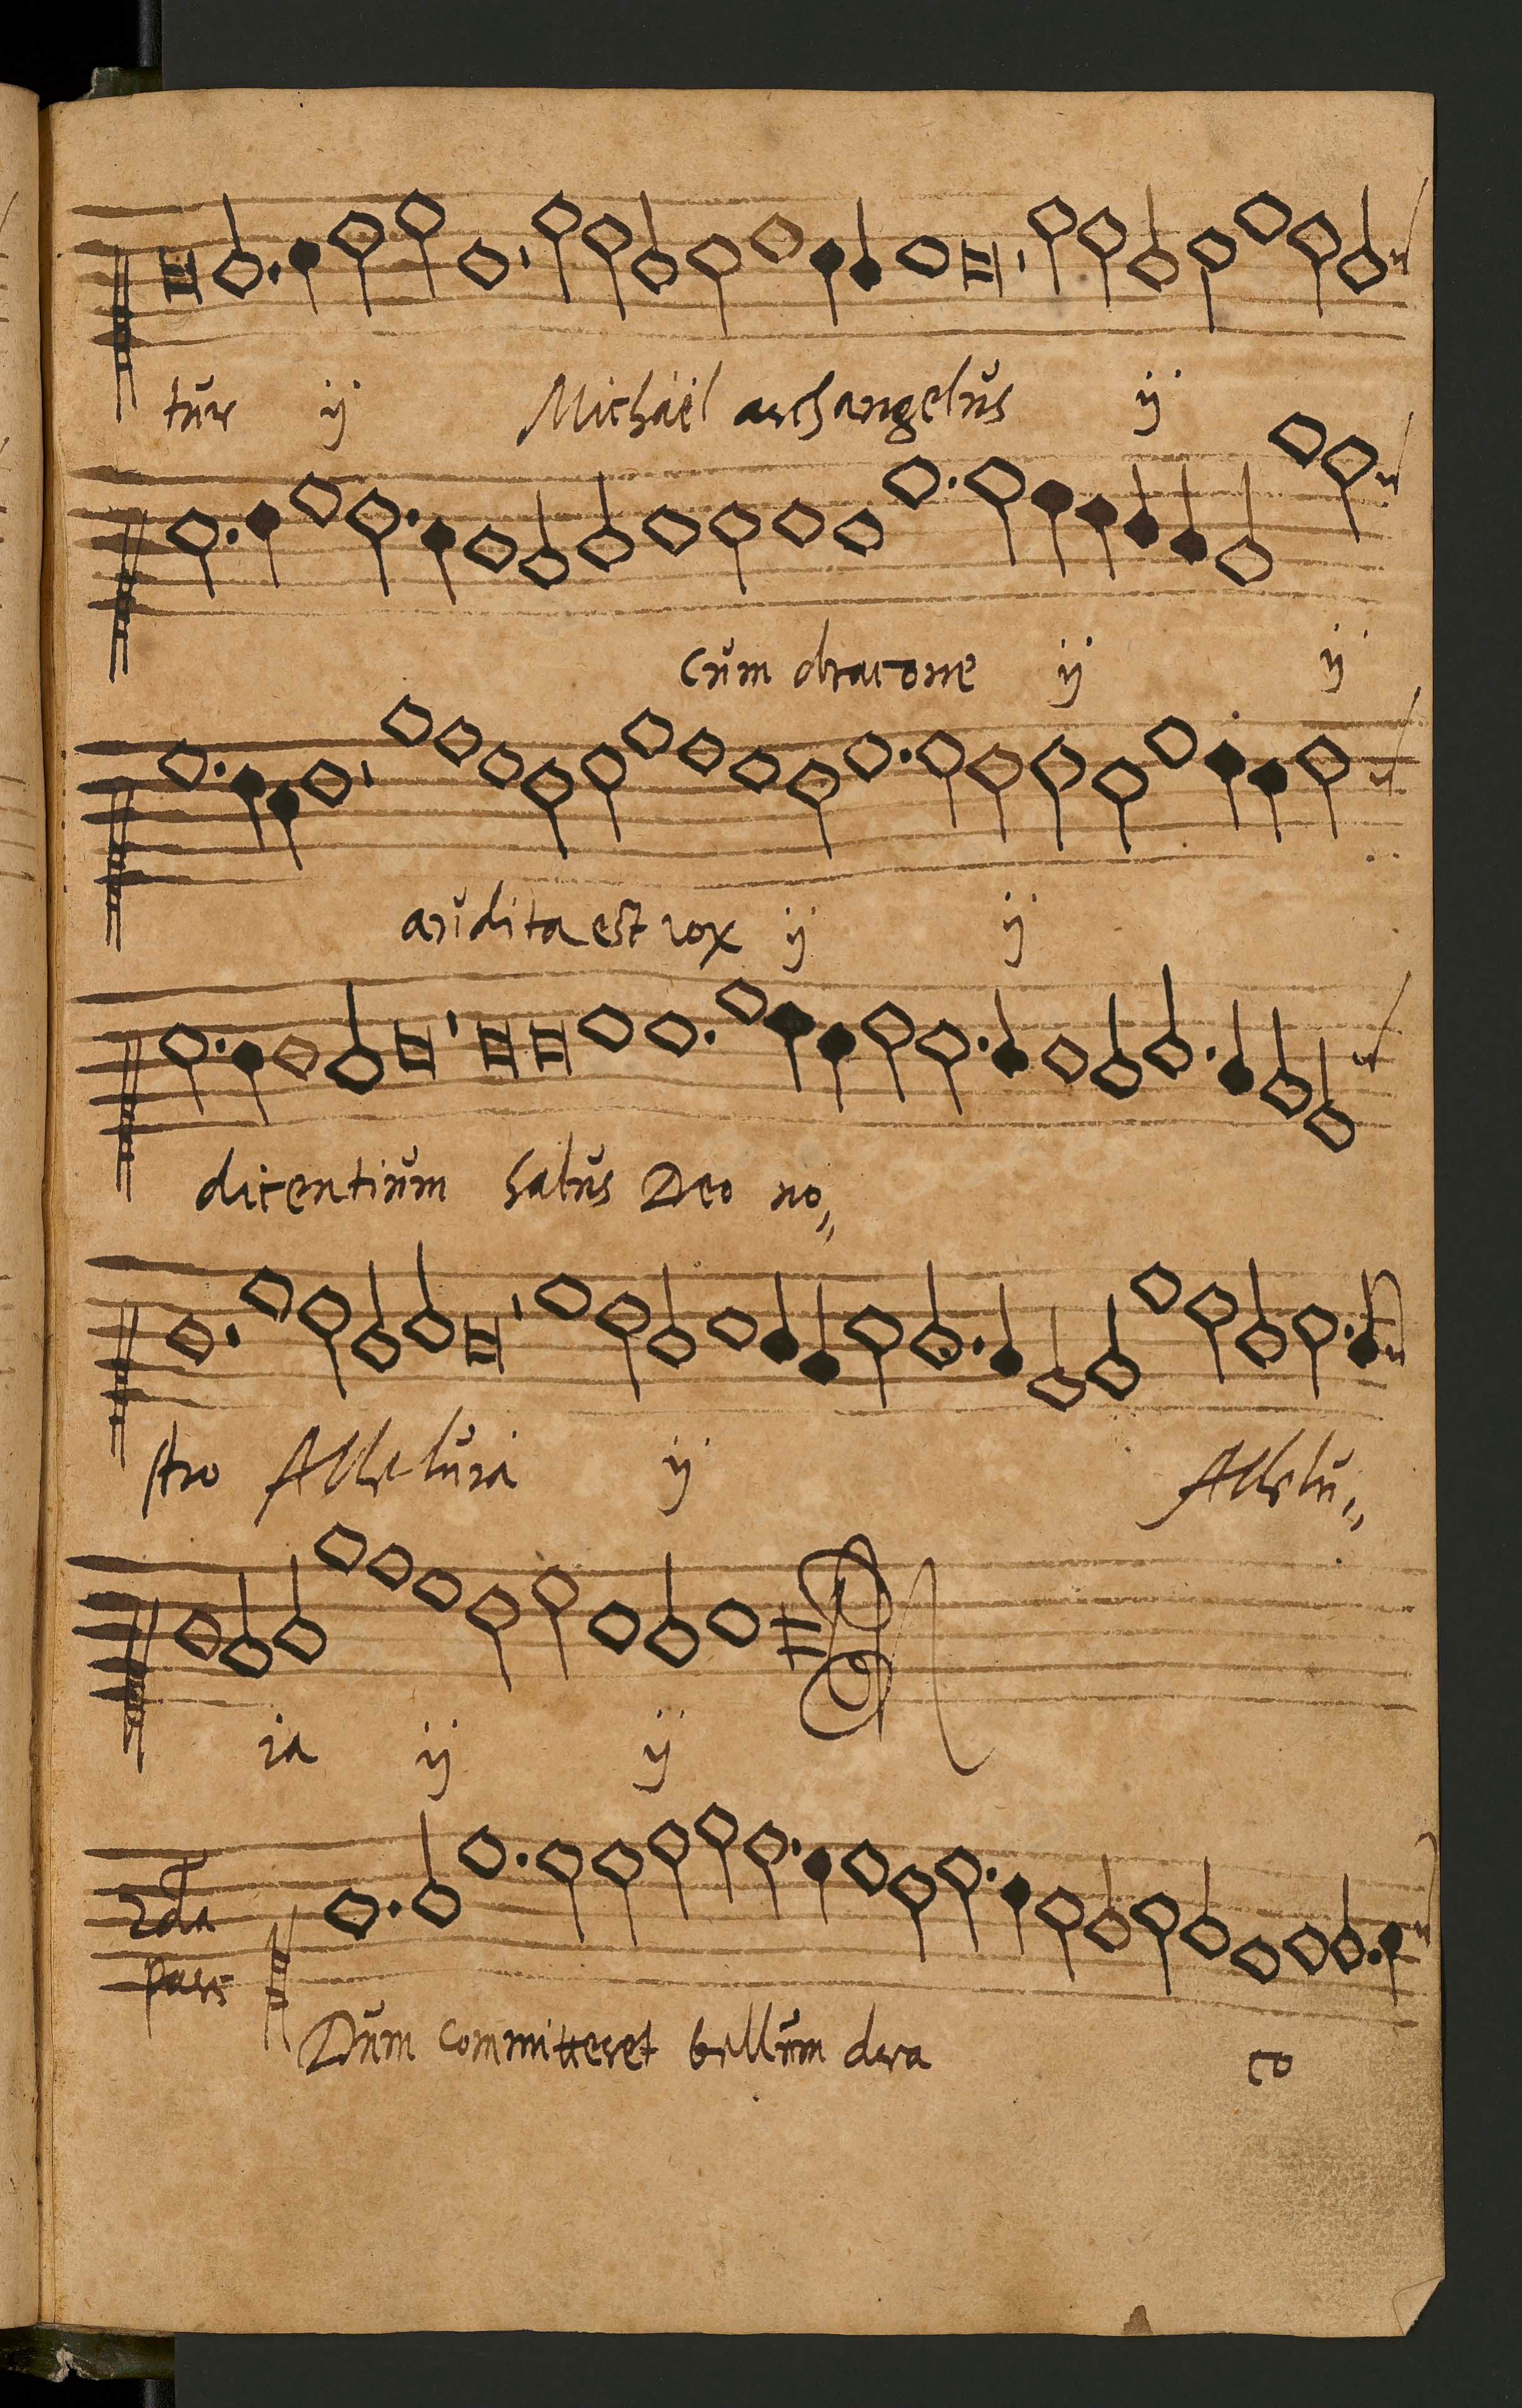 tŭr ij Michaël archangelŭs ij
Cŭm dracone ij ij
aŭdita est vox ij ij
dicentiŭm salŭs Deo no„
stro Allelŭia ij Allelŭ„
ia ij ij
2da
pars
Dŭm committeret bellŭm dra co